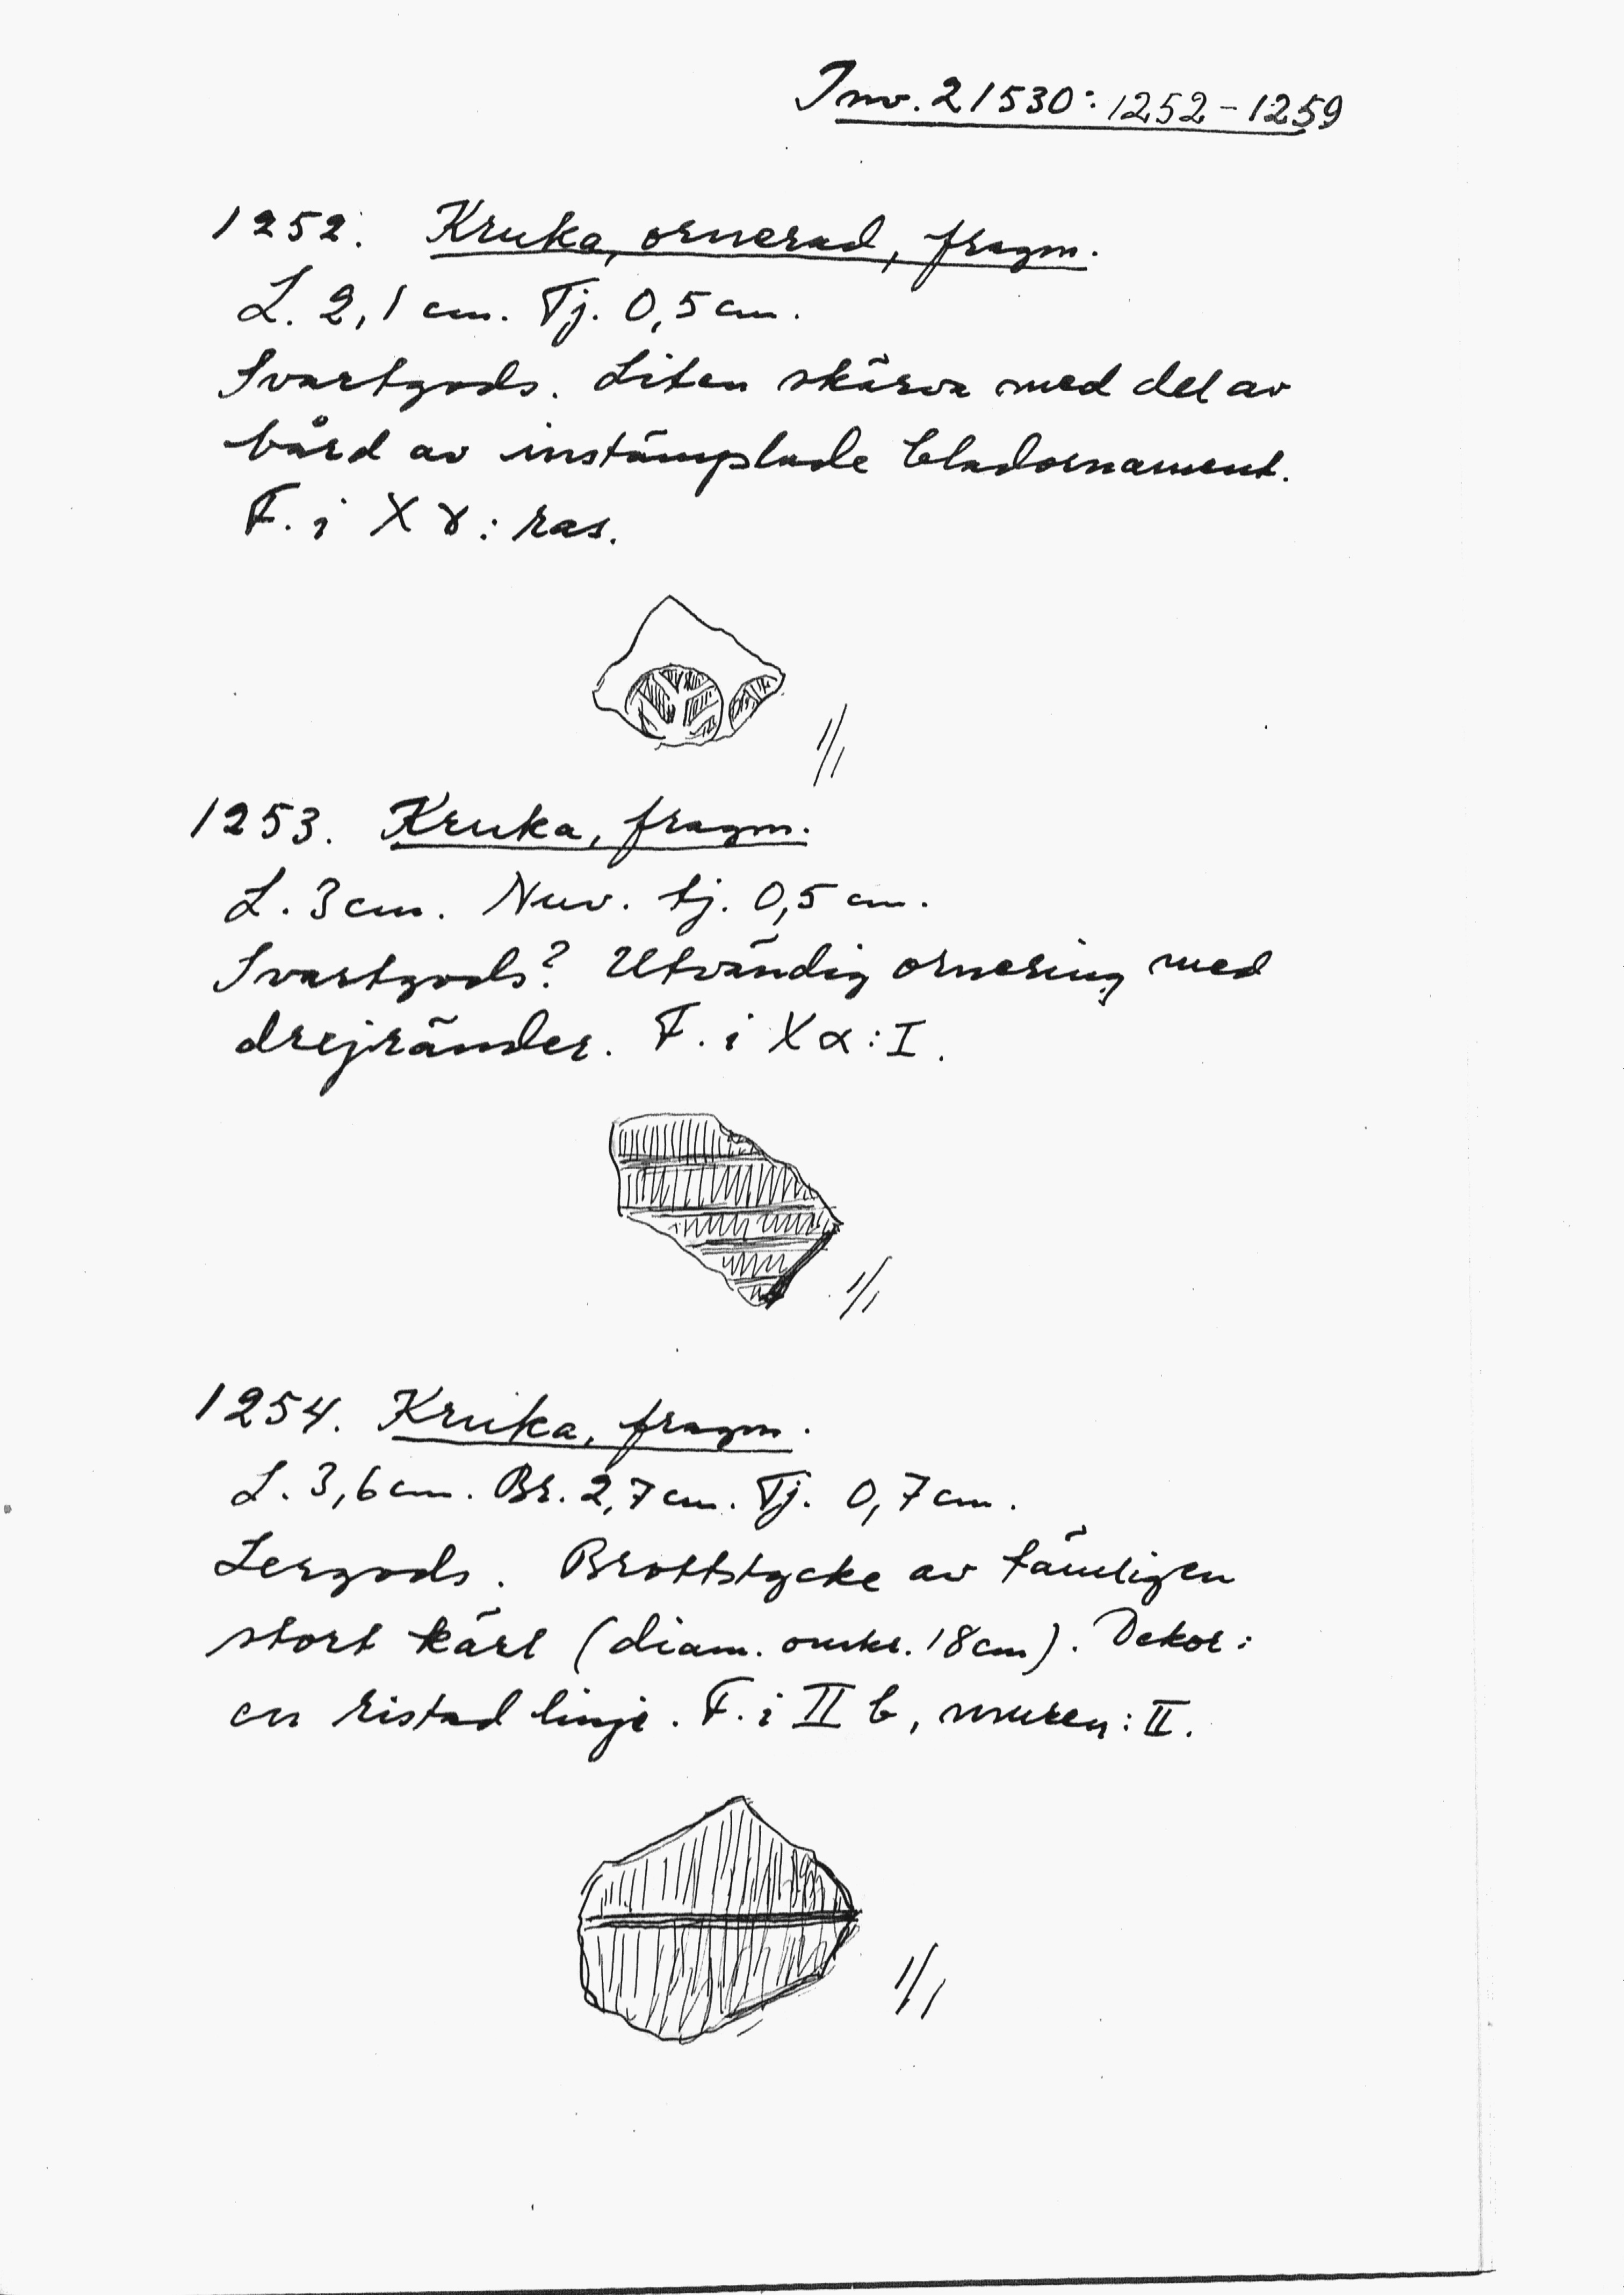 Inv. 21530: 1252-1259
1252. Kruka, ornerad, fragm.
L. 2,1 cm. Tj. 0,5 cm.
Svartgods. Liten skärva med del av
bård av instämplade bladornament.
F. i X γ: ras.
1/1
1253. Kruka, fragm.
L. 3 cm. Nuv. tj. 0,5 cm.
Svartgods? Utvändig ornering med
drejränder. F. i X α: I.
1/1
1254. Kruka, fragm.
L. 3,6 cm. Br. 2,7 cm. Tj. 0,7 cm.
Lergods. Brottstycke av tämligen
stort kärl (diam. omkr. 18 cm). Dekor:
en ristad linje. F. i II b, muren: II.
1/1